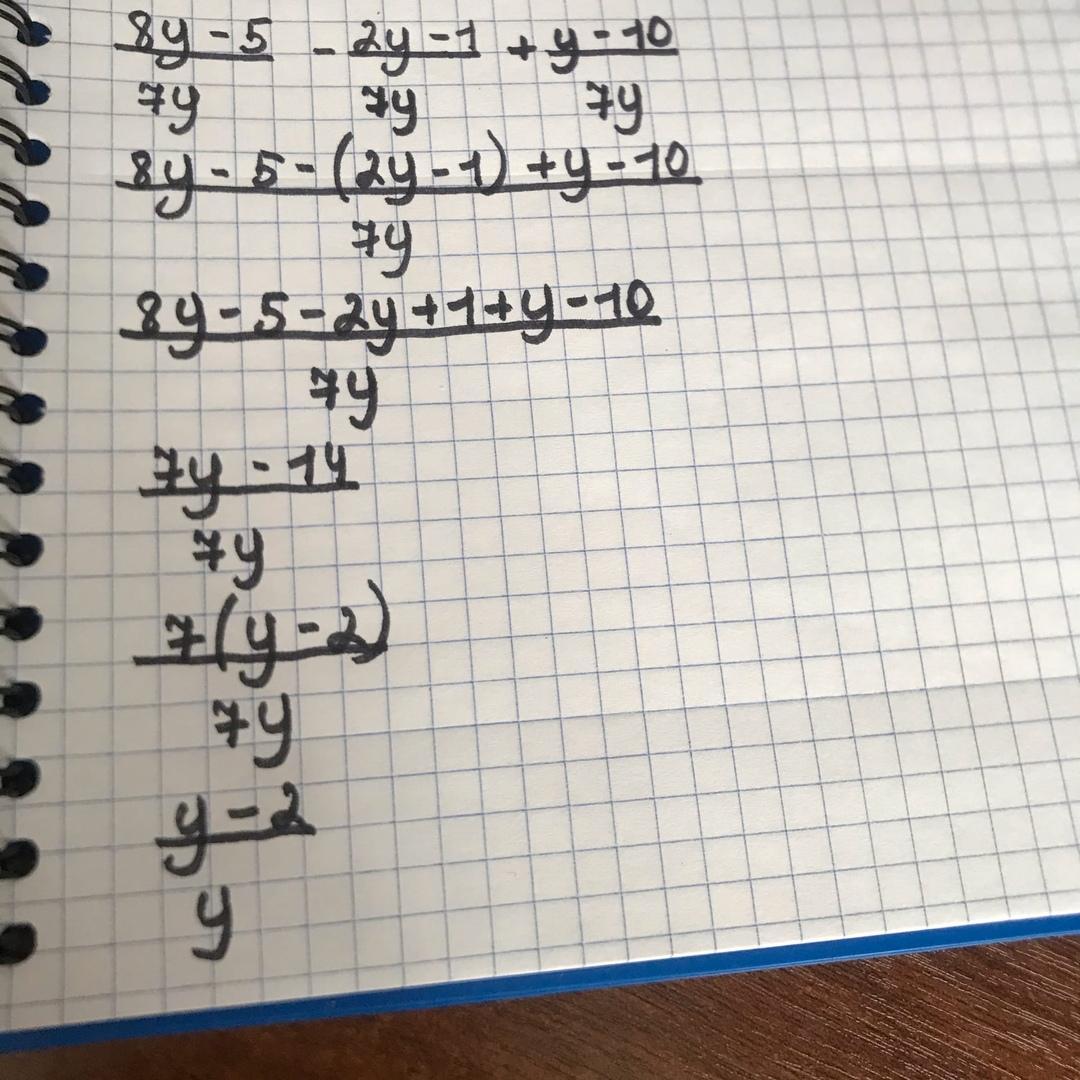 8y - 5 - 2y - 1 + y - 10
7y 7y 7y
8y - 5 - (2y - 1) + y - 10
7y
8y - 5 - 2y + 1 + y - 10
7y
7y - 14
7y
7(y - 2)
7y
y - 2
y